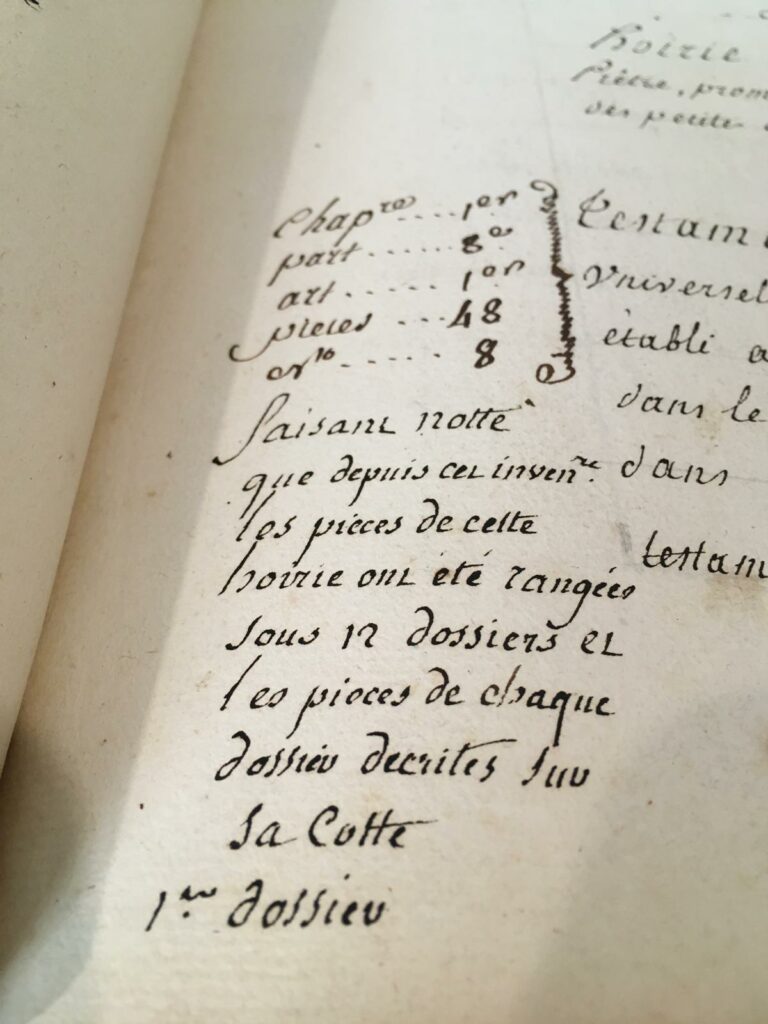 hoirie
Prêtre, prom
des petits
Chap^re .... 1^er
part ...... 8^e
art ...... 1^er
pieces ... 48
8
testam
Universel
établi a
dans le
dans
testam
faisant notte
que depuis cet inven^re.
les pieces de cette
hoirie ont été rangées
sous 12 dossiers et
les pieces de chaque
dossier decrites sur
sa Cotte
1^er dossier